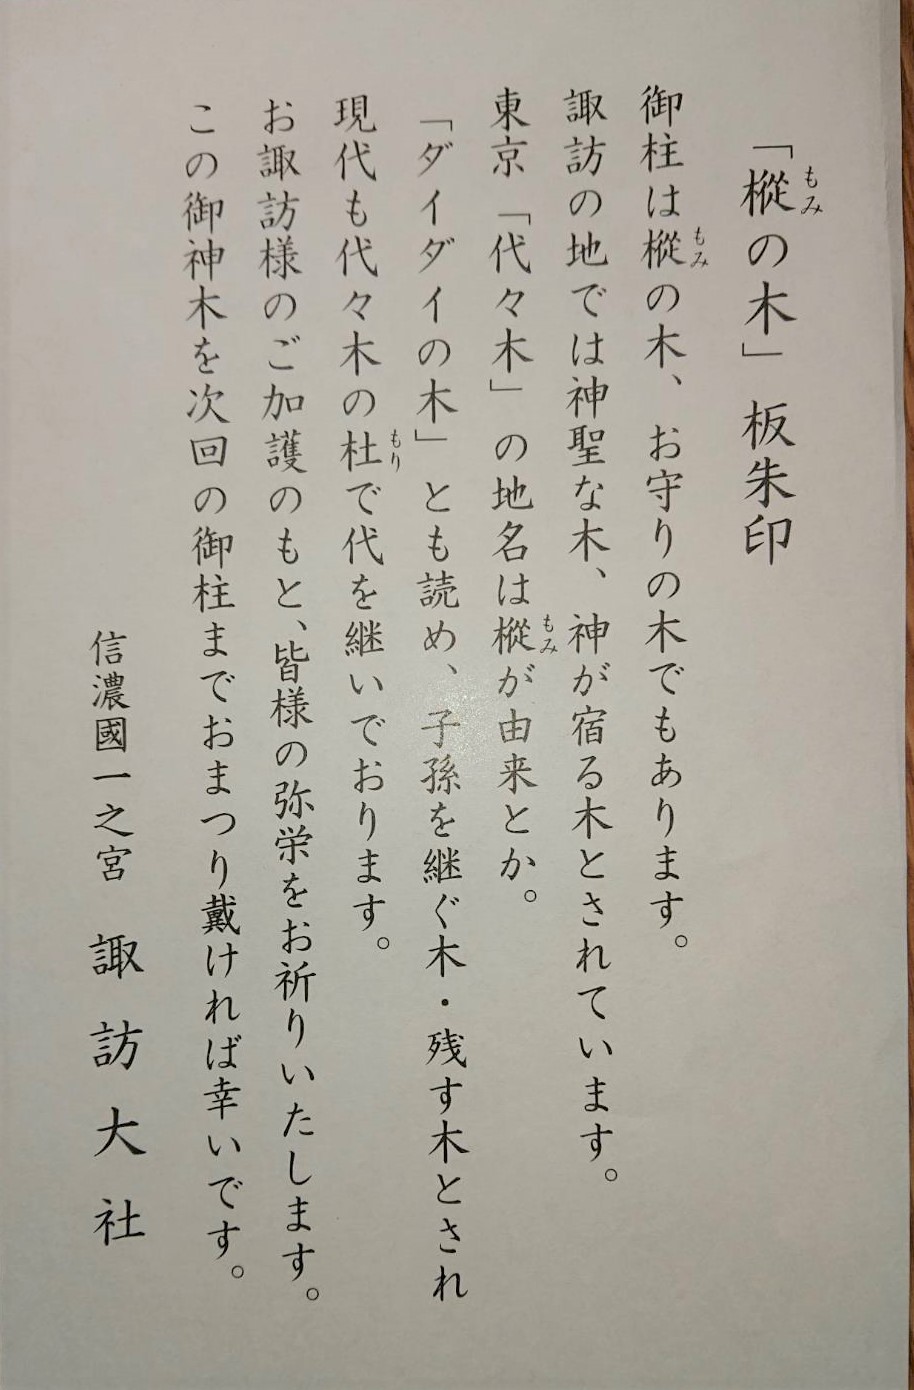 「樅の木」板朱印
御柱は樅の木、お守りの木でもあります。
諏訪の地では神聖な木、神が宿る木とされています。
東京「代々木」の地名は樅が由来とか。
「ダイダイの木」とも読め、子孫を継ぐ木・残す木とされ
現代も代々木の杜で代を継いでおります。
お諏訪様のご加護のもと、皆様の弥栄をお祈りいたします。
この御神木を次回の御柱までおまつり戴ければ幸いです。
信濃國一之宮 諏訪大社
もみ
もみ
もみ
もり